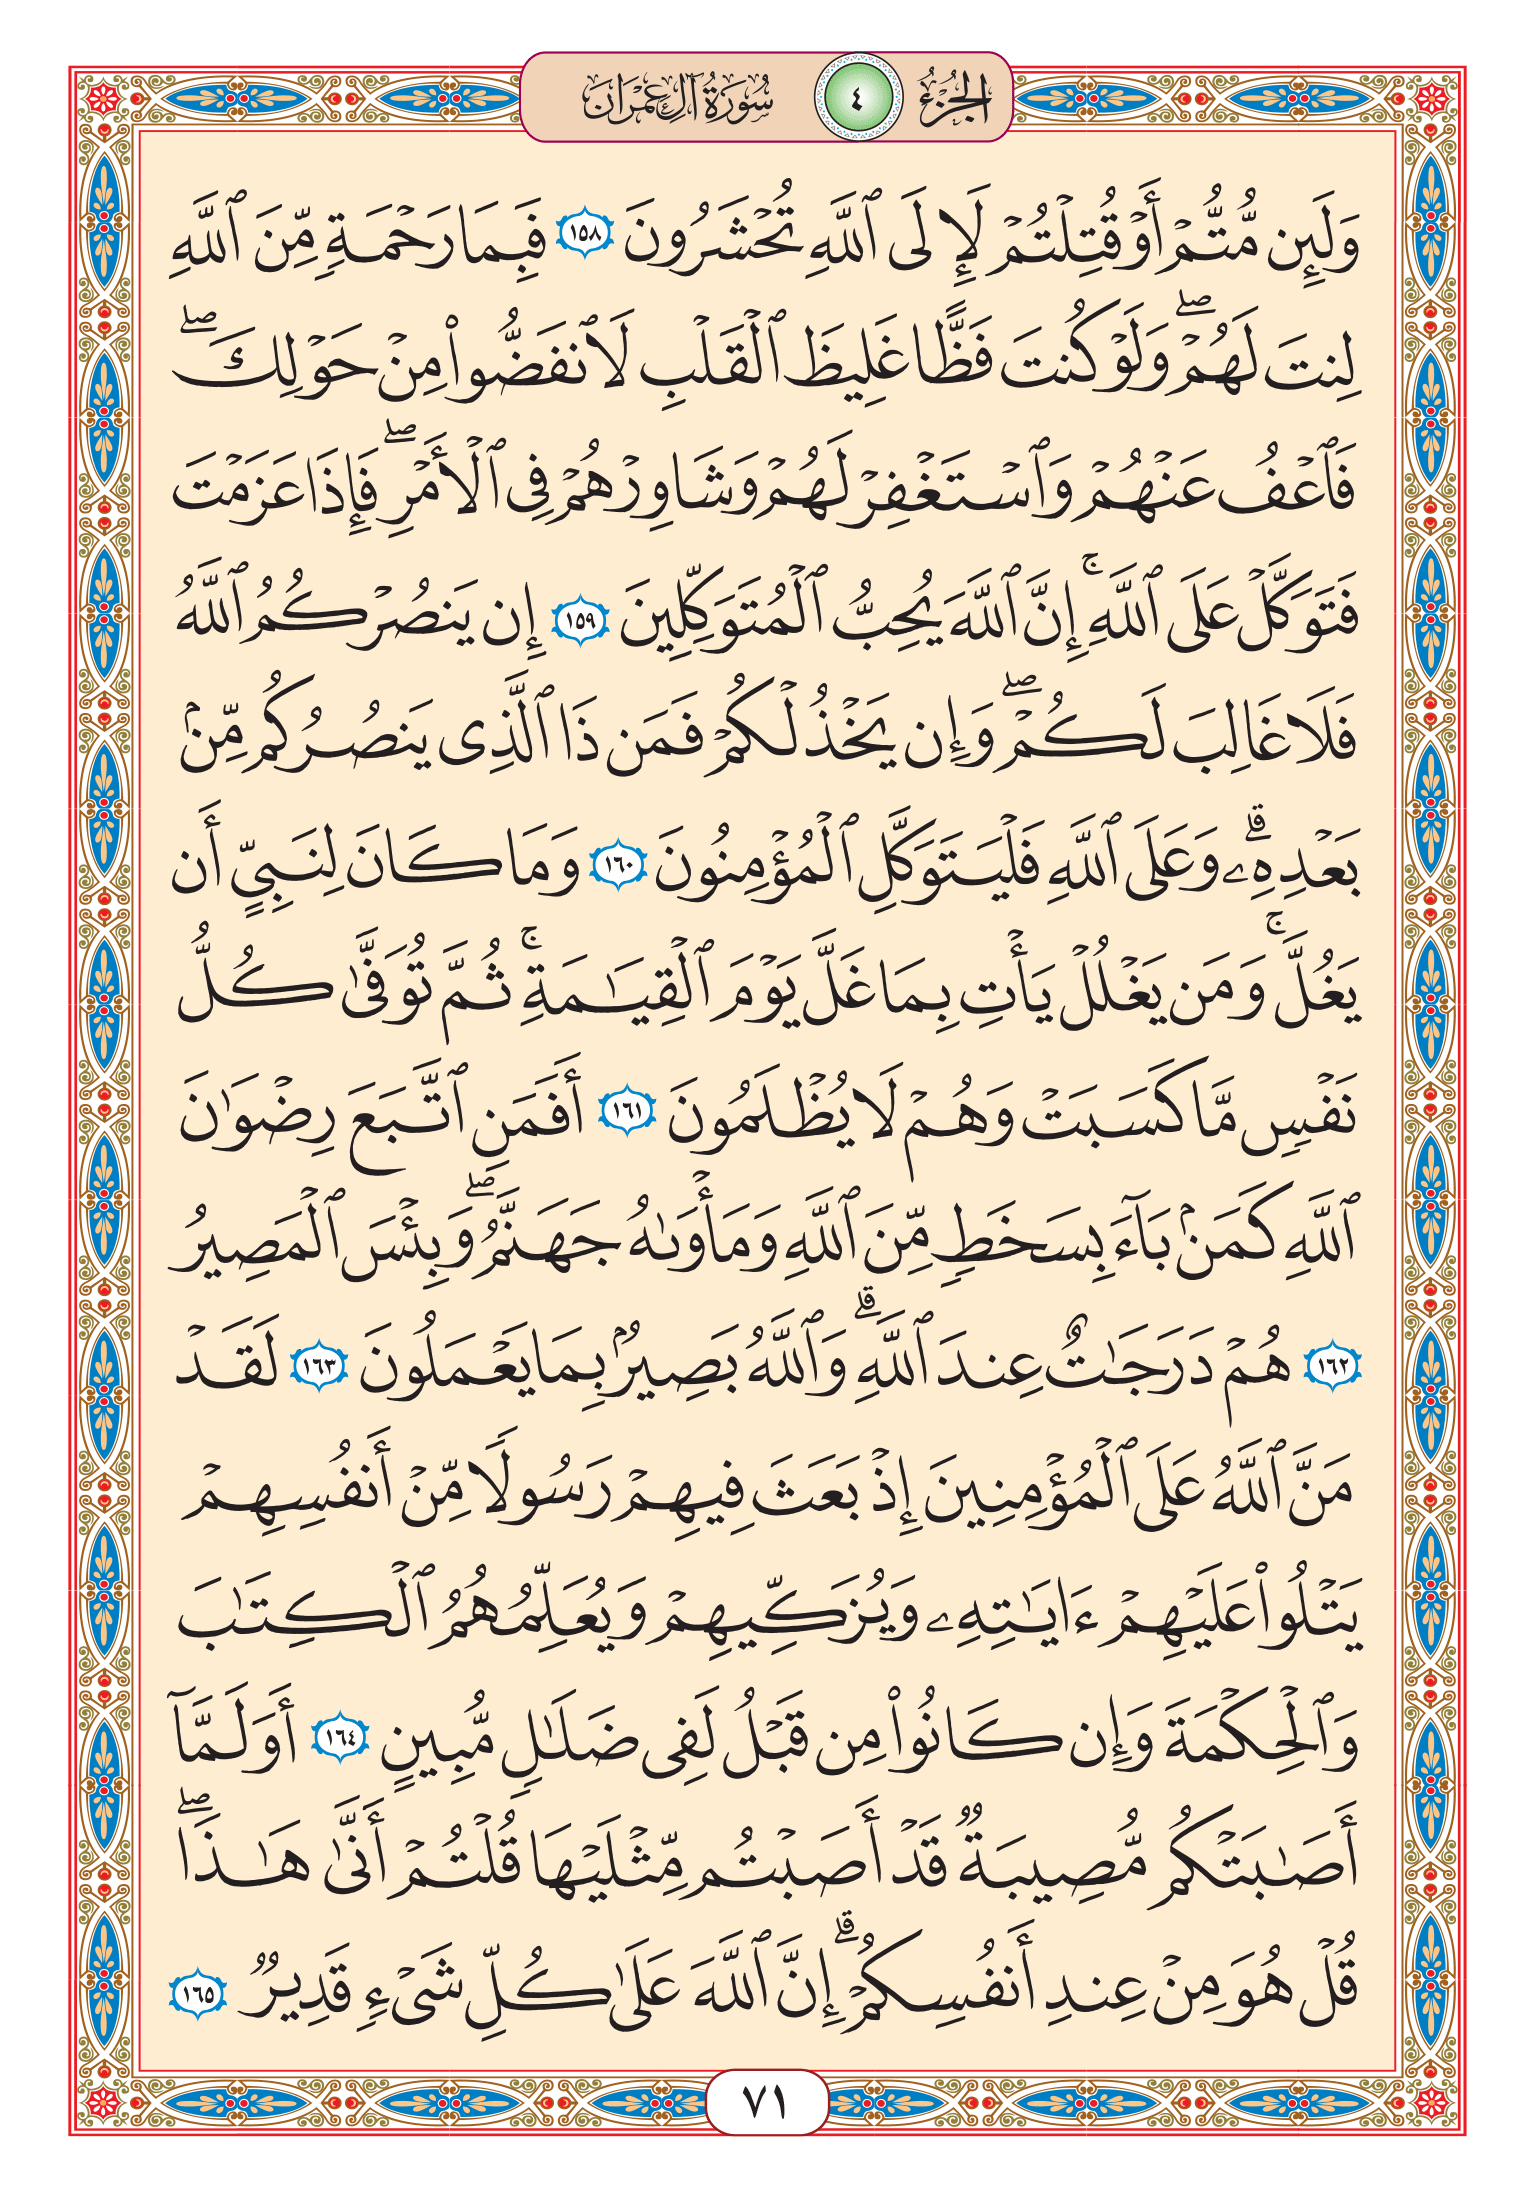 الجزء ٤ سورة آل عمران
وَلَئِن مُّتُّمْ أَوْ قُتِلْتُمْ لَإِلَى ٱللَّهِ تُحْشَرُونَ ١٥٨ فَبِمَا رَحْمَةٍ مِّنَ ٱللَّهِ
لِنتَ لَهُمْ ۖ وَلَوْ كُنتَ فَظًّا غَلِيظَ ٱلْقَلْبِ لَٱنفَضُّوا۟ مِنْ حَوْلِكَ ۖ
فَٱعْفُ عَنْهُمْ وَٱسْتَغْفِرْ لَهُمْ وَشَاوِرْهُمْ فِى ٱلْأَمْرِ ۖ فَإِذَا عَزَمْتَ
فَتَوَكَّلْ عَلَى ٱللَّهِ ۚ إِنَّ ٱللَّهَ يُحِبُّ ٱلْمُتَوَكِّلِينَ ١٥٩ إِن يَنصُرْكُمُ ٱللَّهُ
فَلَا غَالِبَ لَكُمْ ۖ وَإِن يَخْذُلْكُمْ فَمَن ذَا ٱلَّذِى يَنصُرُكُم مِّنۢ
بَعْدِهِۦ ۗ وَعَلَى ٱللَّهِ فَلْيَتَوَكَّلِ ٱلْمُؤْمِنُونَ ١٦٠ وَمَا كَانَ لِنَبِىٍّ أَن
يَغُلَّ ۚ وَمَن يَغْلُلْ يَأْتِ بِمَا غَلَّ يَوْمَ ٱلْقِيَـٰمَةِ ۚ ثُمَّ تُوَفَّىٰ كُلُّ
نَفْسٍ مَّا كَسَبَتْ وَهُمْ لَا يُظْلَمُونَ ١٦١ أَفَمَنِ ٱتَّبَعَ رِضْوَٰنَ
ٱللَّهِ كَمَنۢ بَآءَ بِسَخَطٍ مِّنَ ٱللَّهِ وَمَأْوَىٰهُ جَهَنَّمُ ۖ وَبِئْسَ ٱلْمَصِيرُ
١٦٢ هُمْ دَرَجَـٰتٌ عِندَ ٱللَّهِ ۗ وَٱللَّهُ بَصِيرٌۢ بِمَا يَعْمَلُونَ ١٦٣ لَقَدْ
مَنَّ ٱللَّهُ عَلَى ٱلْمُؤْمِنِينَ إِذْ بَعَثَ فِيهِمْ رَسُولًا مِّنْ أَنفُسِهِمْ
يَتْلُوا۟ عَلَيْهِمْ ءَايَـٰتِهِۦ وَيُزَكِّيهِمْ وَيُعَلِّمُهُمُ ٱلْكِتَـٰبَ
وَٱلْحِكْمَةَ وَإِن كَانُوا۟ مِن قَبْلُ لَفِى ضَلَـٰلٍ مُّبِينٍ ١٦٤ أَوَلَمَّآ
أَصَـٰبَتْكُم مُّصِيبَةٌ قَدْ أَصَبْتُم مِّثْلَيْهَا قُلْتُمْ أَنَّىٰ هَـٰذَا ۖ
قُلْ هُوَ مِنْ عِندِ أَنفُسِكُمْ ۗ إِنَّ ٱللَّهَ عَلَىٰ كُلِّ شَىْءٍ قَدِيرٌ ١٦٥
٧١